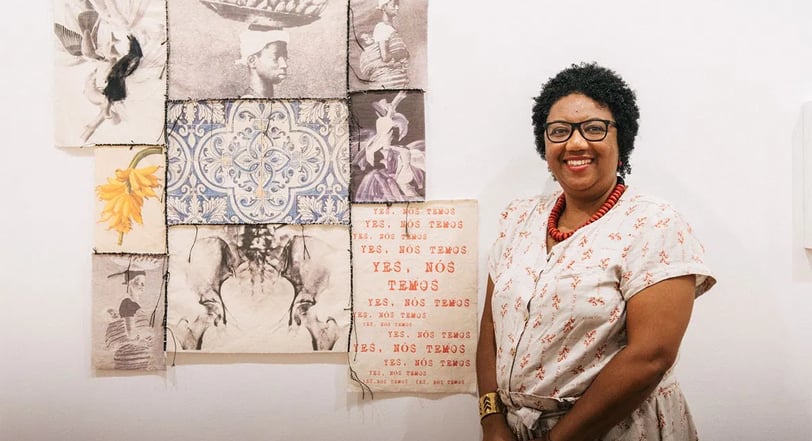 YES, NÓS TEMOS
YES, NÓS TEMOS
YES, NÓS TEMOS
YES, NÓS TEMOS
YES, NÓS
TEMOS
YES, NÓS TEMOS
YES, NÓS TEMOS
YES, NÓS TEMOS
YES, NÓS TEMOS
YES, NÓS TEMOS
YES, NÓS TEMOS
YES, NÓS TEMOS
YES, NÓS TEMOS YES, NÓS TEMOS